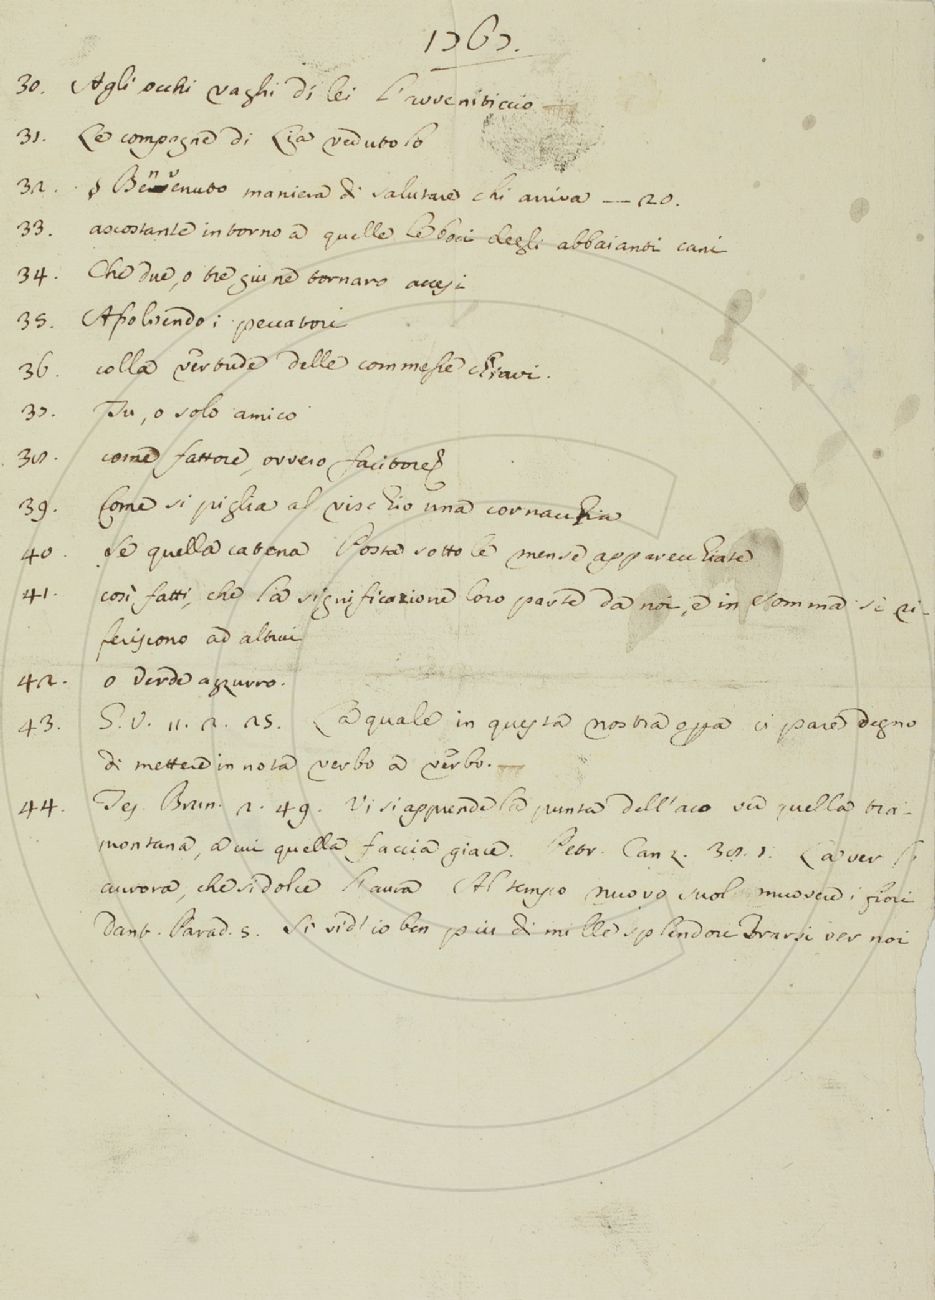 1767.
30. Agli occhi vaghi di lei l'avveniticcio
31. Le compagne di Lia vedutolo
32. Benvenuto maniera di salutare chi arriva — 20.
33. ascostante intorno a quelle le boci degli abbaianti cani
34. Che due, o tre giune tornaro accesi
35. Assolvendo i peccatori
36. colla vertude delle commesse chiavi.
37. Tu, o solo amico
38. come fattore, ovvero facitore
39. Come si piglia al vischio una cornacchia
40. Se quella catena Posta sotto le mense apparecchiate
41. così fatti, che la significazione loro parte da noi, e in somma si ri-
feriscono ad altrui
42. o verde azzurro.
43. G. V. 11. 2. 25. La quale in questa nostra opa ci pare degno
di mettere in nota verbo a verbo.
44. Tes. Brun. 2. 49. Vi si apprende la punta dell'aco ver quella tra-
montana, a cui quella faccia giace. Petr. Canz. 38. 1. La ver l'
aurora, che sì dolce l'aura Al tempo nuovo suol muovere i fiori
Dant. Parad. 5. Sì vid' io ben più di mille splendori Trarsi ver noi